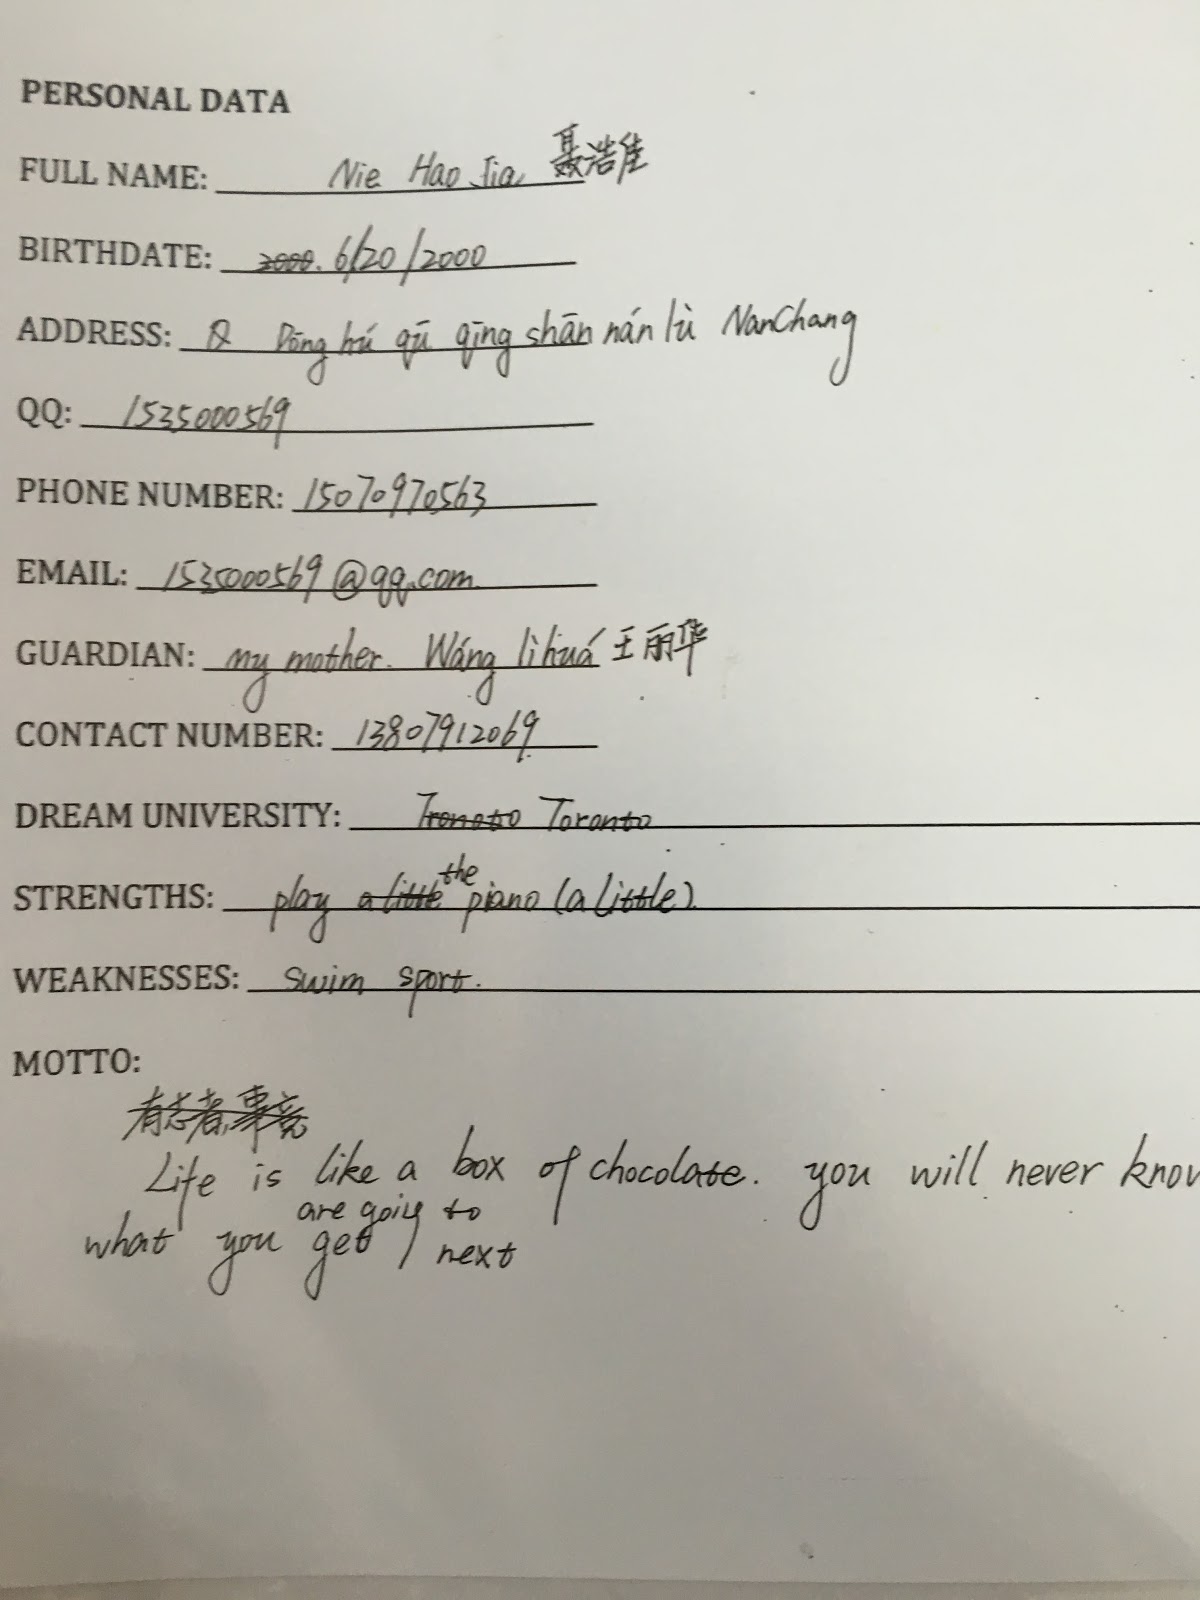 PERSONAL DATA
FULL NAME: Nie Hao Jia 聂浩佳
BIRTHDATE: 2000. 6/20/2000
ADDRESS: Dōng hú qū qīng shān nán lù NanChang
QQ: 1535000569
PHONE NUMBER: 15070970563
EMAIL: 1535000569@qq.com
GUARDIAN: my mother. Wáng lì huá 王丽华
CONTACT NUMBER: 13807912069
DREAM UNIVERSITY: Tronoto Toronto
STRENGTHS: play a little the piano (a little).
WEAKNESSES: swim sport.
MOTTO:
有志者,事竟
Life is like a box of chocolate. you will never know
are going to
what you get next